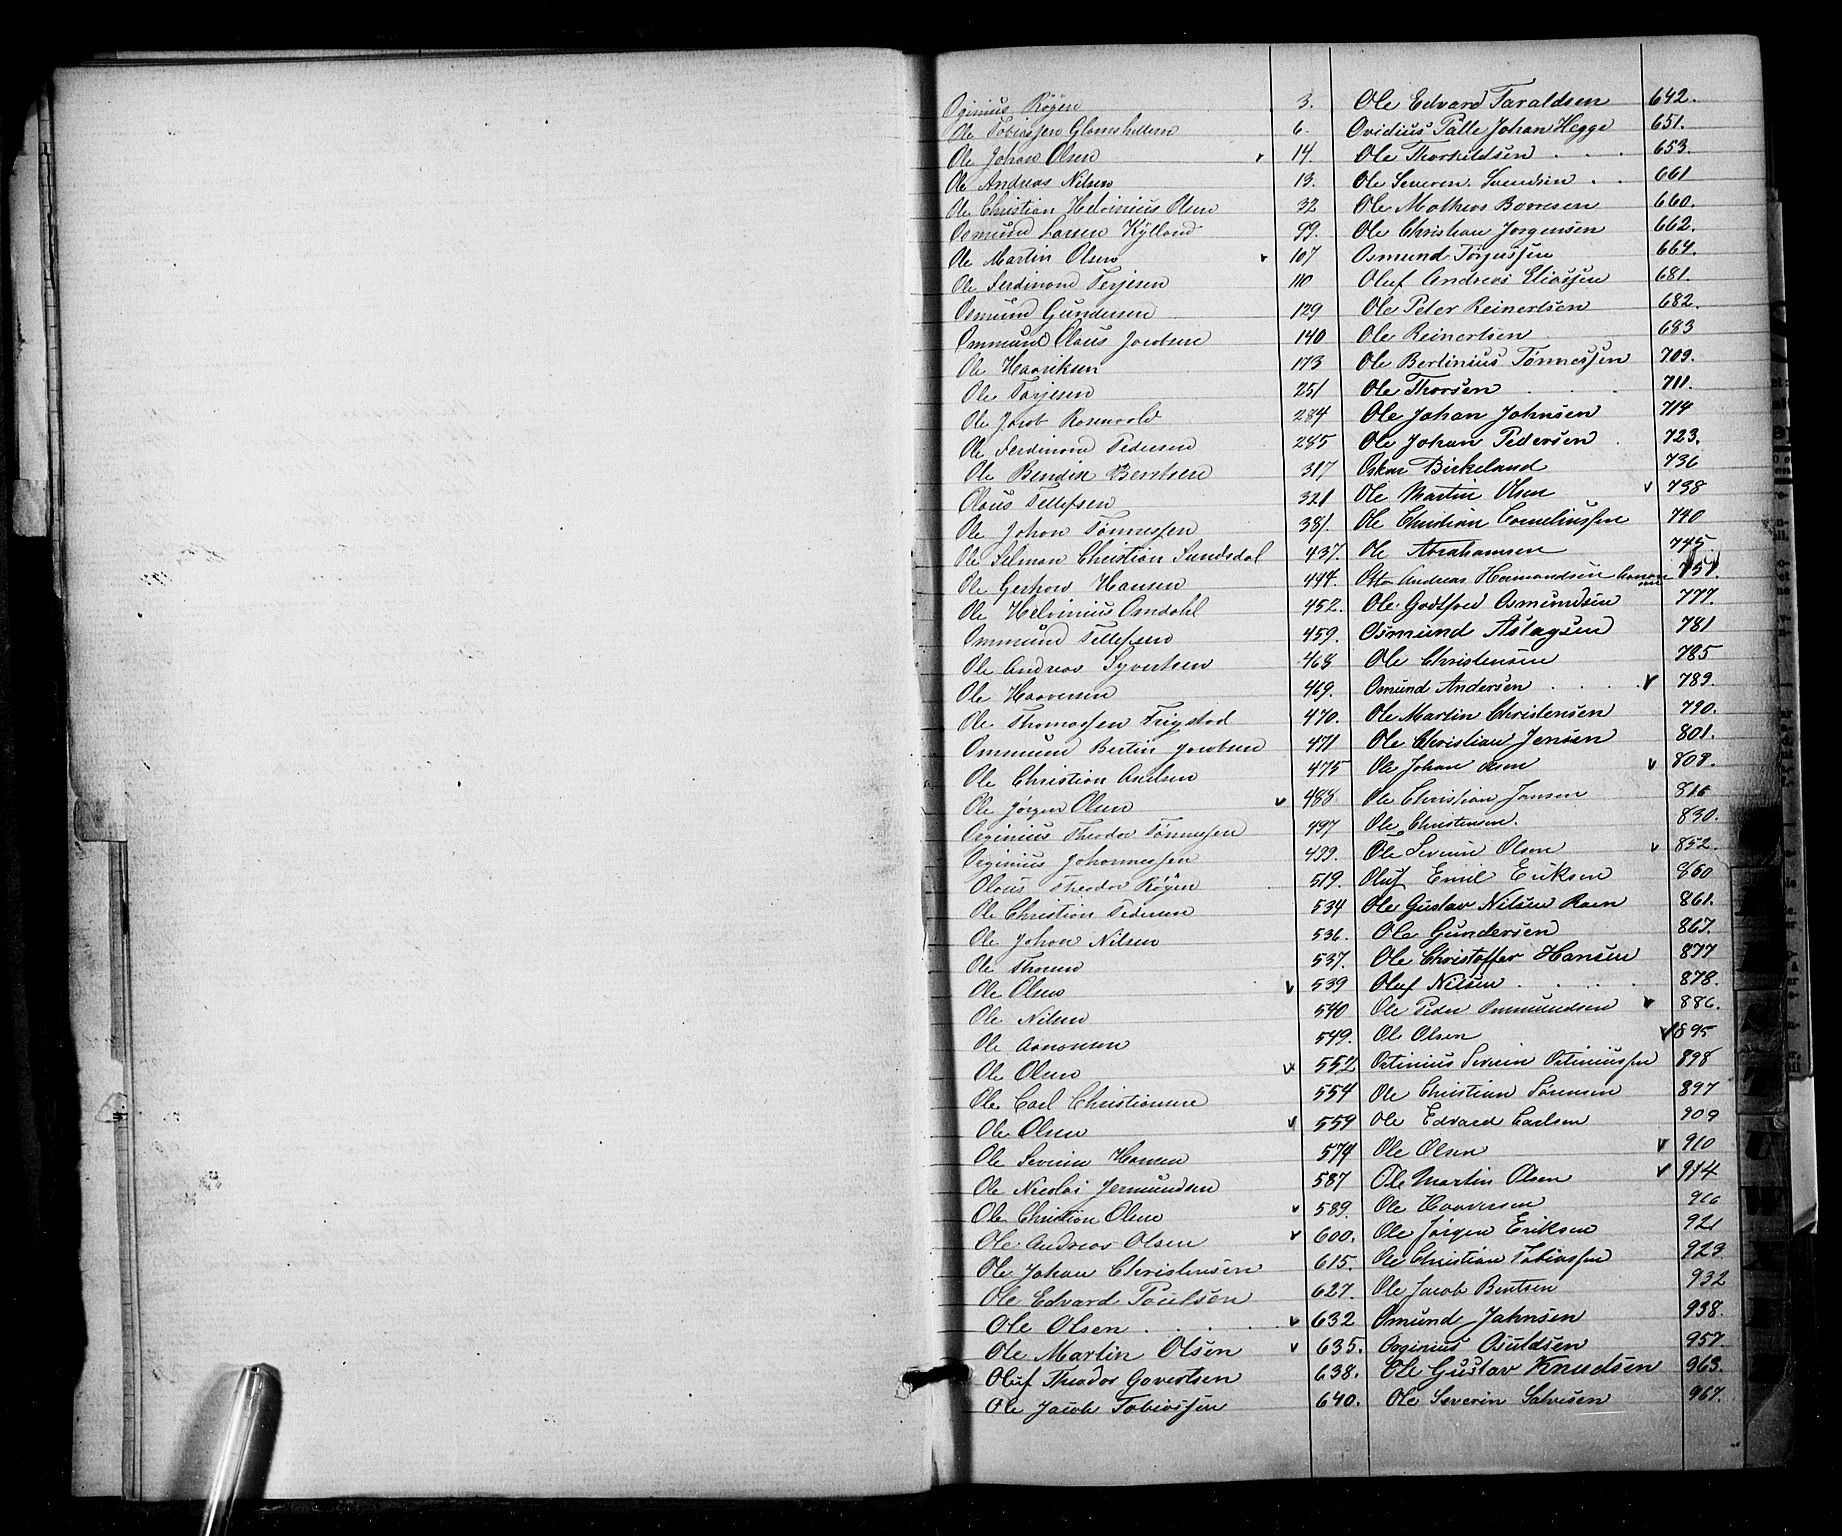 Orginius Røgen 3.
Ole Tobiassen Glomshellern 6.
Ole Johan Olsen v 14.
Ole Andreas Nilsen 13.
Ole Christian Helvinius Olsen 32
Osmund Larsen Kylland 99.
Ole Martin Olsen v 107
Ole Ferdinand Terjesen 110
Osmund Gundersen 129
Ommund Olaus Jacobsen 140
Ole Haariksen 173
Ole Torjesen 251
Ole Jacob Rosenvold 284
Ole Ferdinand Pedersen 285
Ole Bendix Berntsen 317
Olaus Tellefsen 321
Ole Johan Tønnessen 381.
Ole Salman Christian Sundsdal 437.
Ole Hansen 444.
Ole Helvinius Omdahl 452.
Ommund Tellefsen 459.
Ole Andreas Syvertsen 468
Ole Haaversen 469.
Ole Thomassen Frigstad 470.
Ommund Bertin Jacobsen 471
Ole Christian Axelsen 475
Ole Jørgen Olsen v 488
Orginius Theodor Tønnessen 497
Orginius Johannessen 499.
Olaus Theodor Røgen 519.
Ole Christian Pedersen 534
Ole Johan Nilsen 536.
Ole Thorsen 537.
Ole Olsen v 539
Ole Nilsen 540
Ole Aanonsen 549.
Ole Olsen v 552
Ole Carl Christiansen 554
Ole Olsen v 559
Ole Severin Hansen 574
Ole Nicolai Jermundsen 587
Ole Christian Olsen v 589.
Ole Andreas Olsen v 600.
Ole Johan Christensen 615.
Ole Edvard Poulsen 627.
Ole Olsen . . . . v 632
Ole Martin Olsen v 635.
Oluf Theodor Govertsen 638.
Ole Jacob Tobiassen 640.
Ole Edvard Taraldsen 642.
Ovidius Palle Johan Hegge 651.
Ole Thorkildsen . . . 653
Ole Severin Svendsen . . 661
Ole Mathias Børresen 660.
Ole Christian Jørgensen 662.
Osmund Torjussen 664.
Oluf Andreas Eliassen 681.
Ole Peter Reinertsen 682.
Ole Reinertsen 683
Ole Bertinius Tønnessen 709.
Ole Thorsen . . . 711.
Ole Johan Johnsen 714
Ole Johan Pedersen . 723.
Oskar Birkeland 736
Ole Martin Olsen v 738
Ole Christian Corneliussen 740
Ole Abrahamsen 745
Otto Andreas Hermandsen 751.
Ole Godtfred Osmundsen 777.
Osmund Aslagsen 781
Ole Christensen 785
Osmund Andersen . . . v 789.
Ole Martin Christensen 790.
Ole Christian Jensen 801.
Ole Johan Olsen v 808.
Ole Christian Jansen 816
Ole Christensen. 830.
Ole Severin Olsen v 852.
Oluf Emil Eriksen 860
Ole Gustav Nilsen Roen 861.
Ole Gundersen 867.
Ole Christoffer Hansen 877
Oluf Nilsen . . . . 878.
Ole Peder Ommundsen v 886.
Ole Olsen v 895
Ostinius Severin Ostiniussen 898
Ole Christian Sørensen 897
Ole Edvard Carlsen 909
Ole Olsen v 910
Ole Martin Olsen v 914
Ole Haaversen 916
Ole Jørgen Eriksen 921
Ole Christian Tobiassen 929
Ole Jacob Bentsen 932
Osmund Jahnsen 938.
Orginius Osuldsen 957.
Ole Gustav Knudsen 963.
Ole Severin Salvesen 967.